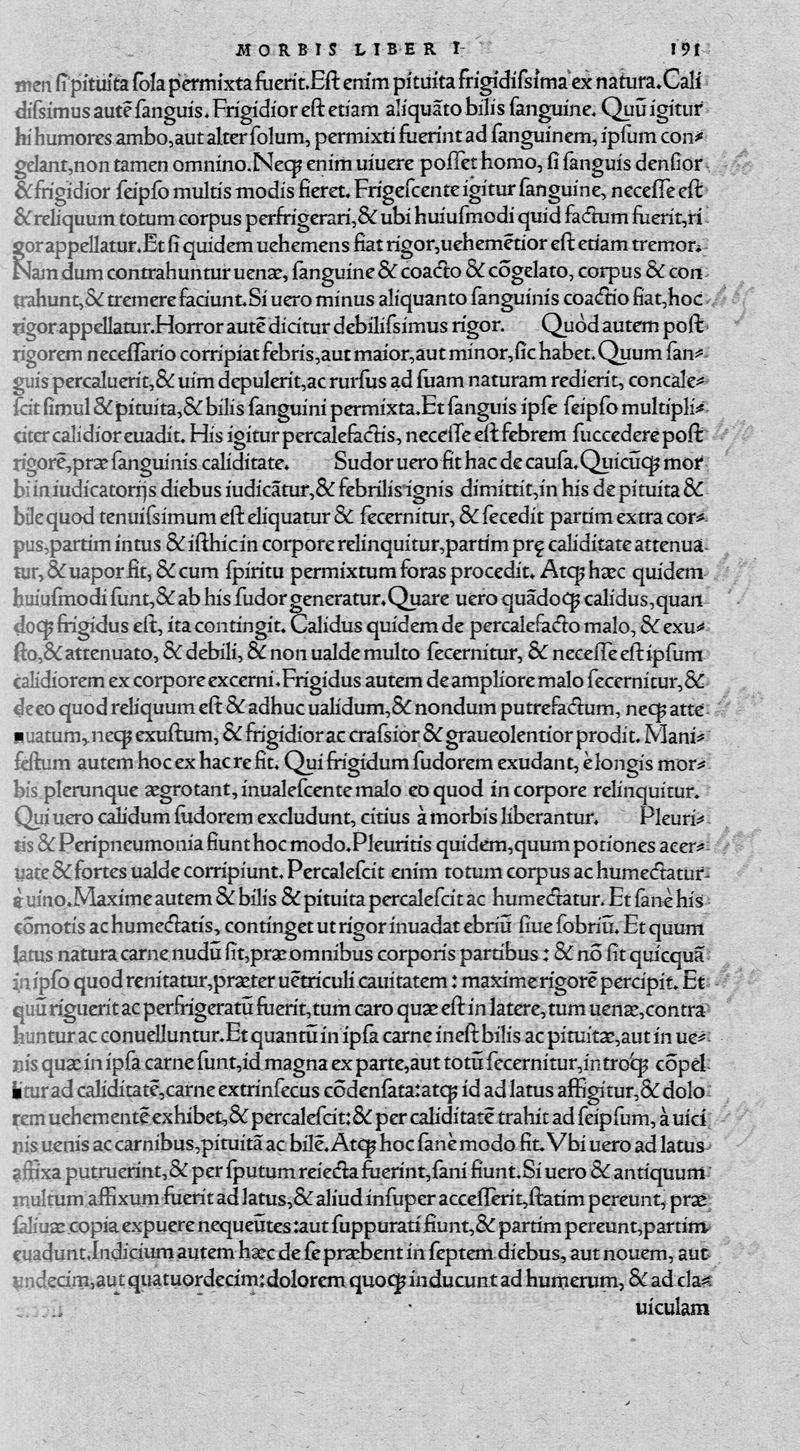 MORBIS LIBER I 191
men si pituita sola permixta fuerit. Est enim pituita frigidissima ex natura. Cali
dissimus autē sanguis. Frigidior est etiam aliquāto bilis sanguine. Quū igitur
hi humores ambo, aut alter solum, permixti fuerint ad sanguinem, ipsum con⸗
gelant, non tamen omnino. Neqꝫ enim uiuere posset homo, si sanguis densior
& frigidior seipso multis modis fieret. Frigescente igitur sanguine, necesse est
& reliquum totum corpus perfrigerari, & ubi huiusmodi quid factum fuerit, ri
gor appellatur. Et si quidem uehemens fiat rigor, uehemētior est etiam tremor.
Nam dum contrahuntur uenæ, sanguine & coacto & cōgelato, corpus & con
trahunt, & tremere faciunt. Si uero minus aliquanto sanguinis coactio fiat, hoc
rigor appellatur. Horror autē dicitur debilissimus rigor. Quòd autem post
rigorem necessario corripiat febris, aut maior, aut minor, sic habet. Quum san⸗
guis percaluerit, & uim depulerit, ac rursus ad suam naturam redierit, concale⸗
scit simul & pituita, & bilis sanguini permixta. Et sanguis ipse seipso multipli⸗
citer calidior euadit. His igitur percalefactis, necesse est febrem succedere post
rigorē, præ sanguinis caliditate. Sudor uero fit hac de causa. Quicūqꝫ mor
bi in iudicatorijs diebus iudicātur, & febrilis ignis dimittit, in his de pituita &
bile quod tenuissimum est eliquatur & secernitur, & secedit partim extra cor⸗
pus, partim intus & isthic in corpore relinquitur, partim prę caliditate attenua
tur, & uapor fit, & cum spiritu permixtum foras procedit. Atqꝫ hæc quidem
huiusmodi sunt, & ab his sudor generatur. Quare uero quādoqꝫ calidus, quan
doqꝫ frigidus est, ita contingit. Calidus quidem de percalefacto malo, & exu⸗
sto, & attenuato, & debili, & non ualde multo secernitur, & necesse est ipsum
calidiorem ex corpore excerni. Frigidus autem de ampliore malo secernitur, &
de eo quod reliquum est & adhuc ualidum, & nondum putrefactum, neqꝫ atte
nuatum, neqꝫ exustum, & frigidior ac crassior & graueolentior prodit. Mani⸗
festum autem hoc ex hac re fit. Qui frigidum sudorem exudant, è longis mor⸗
bis plerunque ægrotant, inualescente malo eo quod in corpore relinquitur.
Qui uero calidum sudorem excludunt, citius à morbis liberantur. Pleuri⸗
tis & Peripneumonia fiunt hoc modo. Pleuritis quidem, quum potiones acer⸗
uate & fortes ualde corripiunt. Percalescit enim totum corpus ac humectatur
à uino. Maxime autem & bilis & pituita percalescit ac humectatur. Et sanè his
cōmotis ac humectatis, continget ut rigor inuadat ebriū siue sobriū. Et quum
latus natura carne nudū sit, præ omnibus corporis partibus: & nō sit quicquā
in ipso quod renitatur, præter uētriculi cauitatem: maxime rigorē percipit. Et
quū riguerit ac perfrigeratū fuerit, tum caro quæ est in latere, tum uenæ, contra
huntur ac conuelluntur. Et quantū in ipsa carne inest bilis ac pituitæ, aut in ue⸗
nis quæ in ipsa carne sunt, id magna ex parte, aut totū secernitur, introqꝫ cōpel
litur ad caliditatē, carne extrinsecus cōdensata: atqꝫ id ad latus affigitur, & dolo
rem uehementē exhibet, & percalescit: & per caliditatē trahit ad seipsum, à uici
nis uenis ac carnibus, pituitā ac bilē. Atqꝫ hoc sanè modo fit. Vbi uero ad latus
affixa putruerint, & per sputum reiecta fuerint, sani fiunt. Si uero & antiquum
multum affixum fuerit ad latus, & aliud insuper accesserit, statim pereunt, præ
saliuæ copia expuere nequeūtes: aut suppurati fiunt, & partim pereunt, partim
euadunt. Indicium autem hæc de se præbent in septem diebus, aut nouem, aut
undecim, aut quatuordecim: dolorem quoqꝫ inducunt ad humerum, & ad cla⸗
uiculam